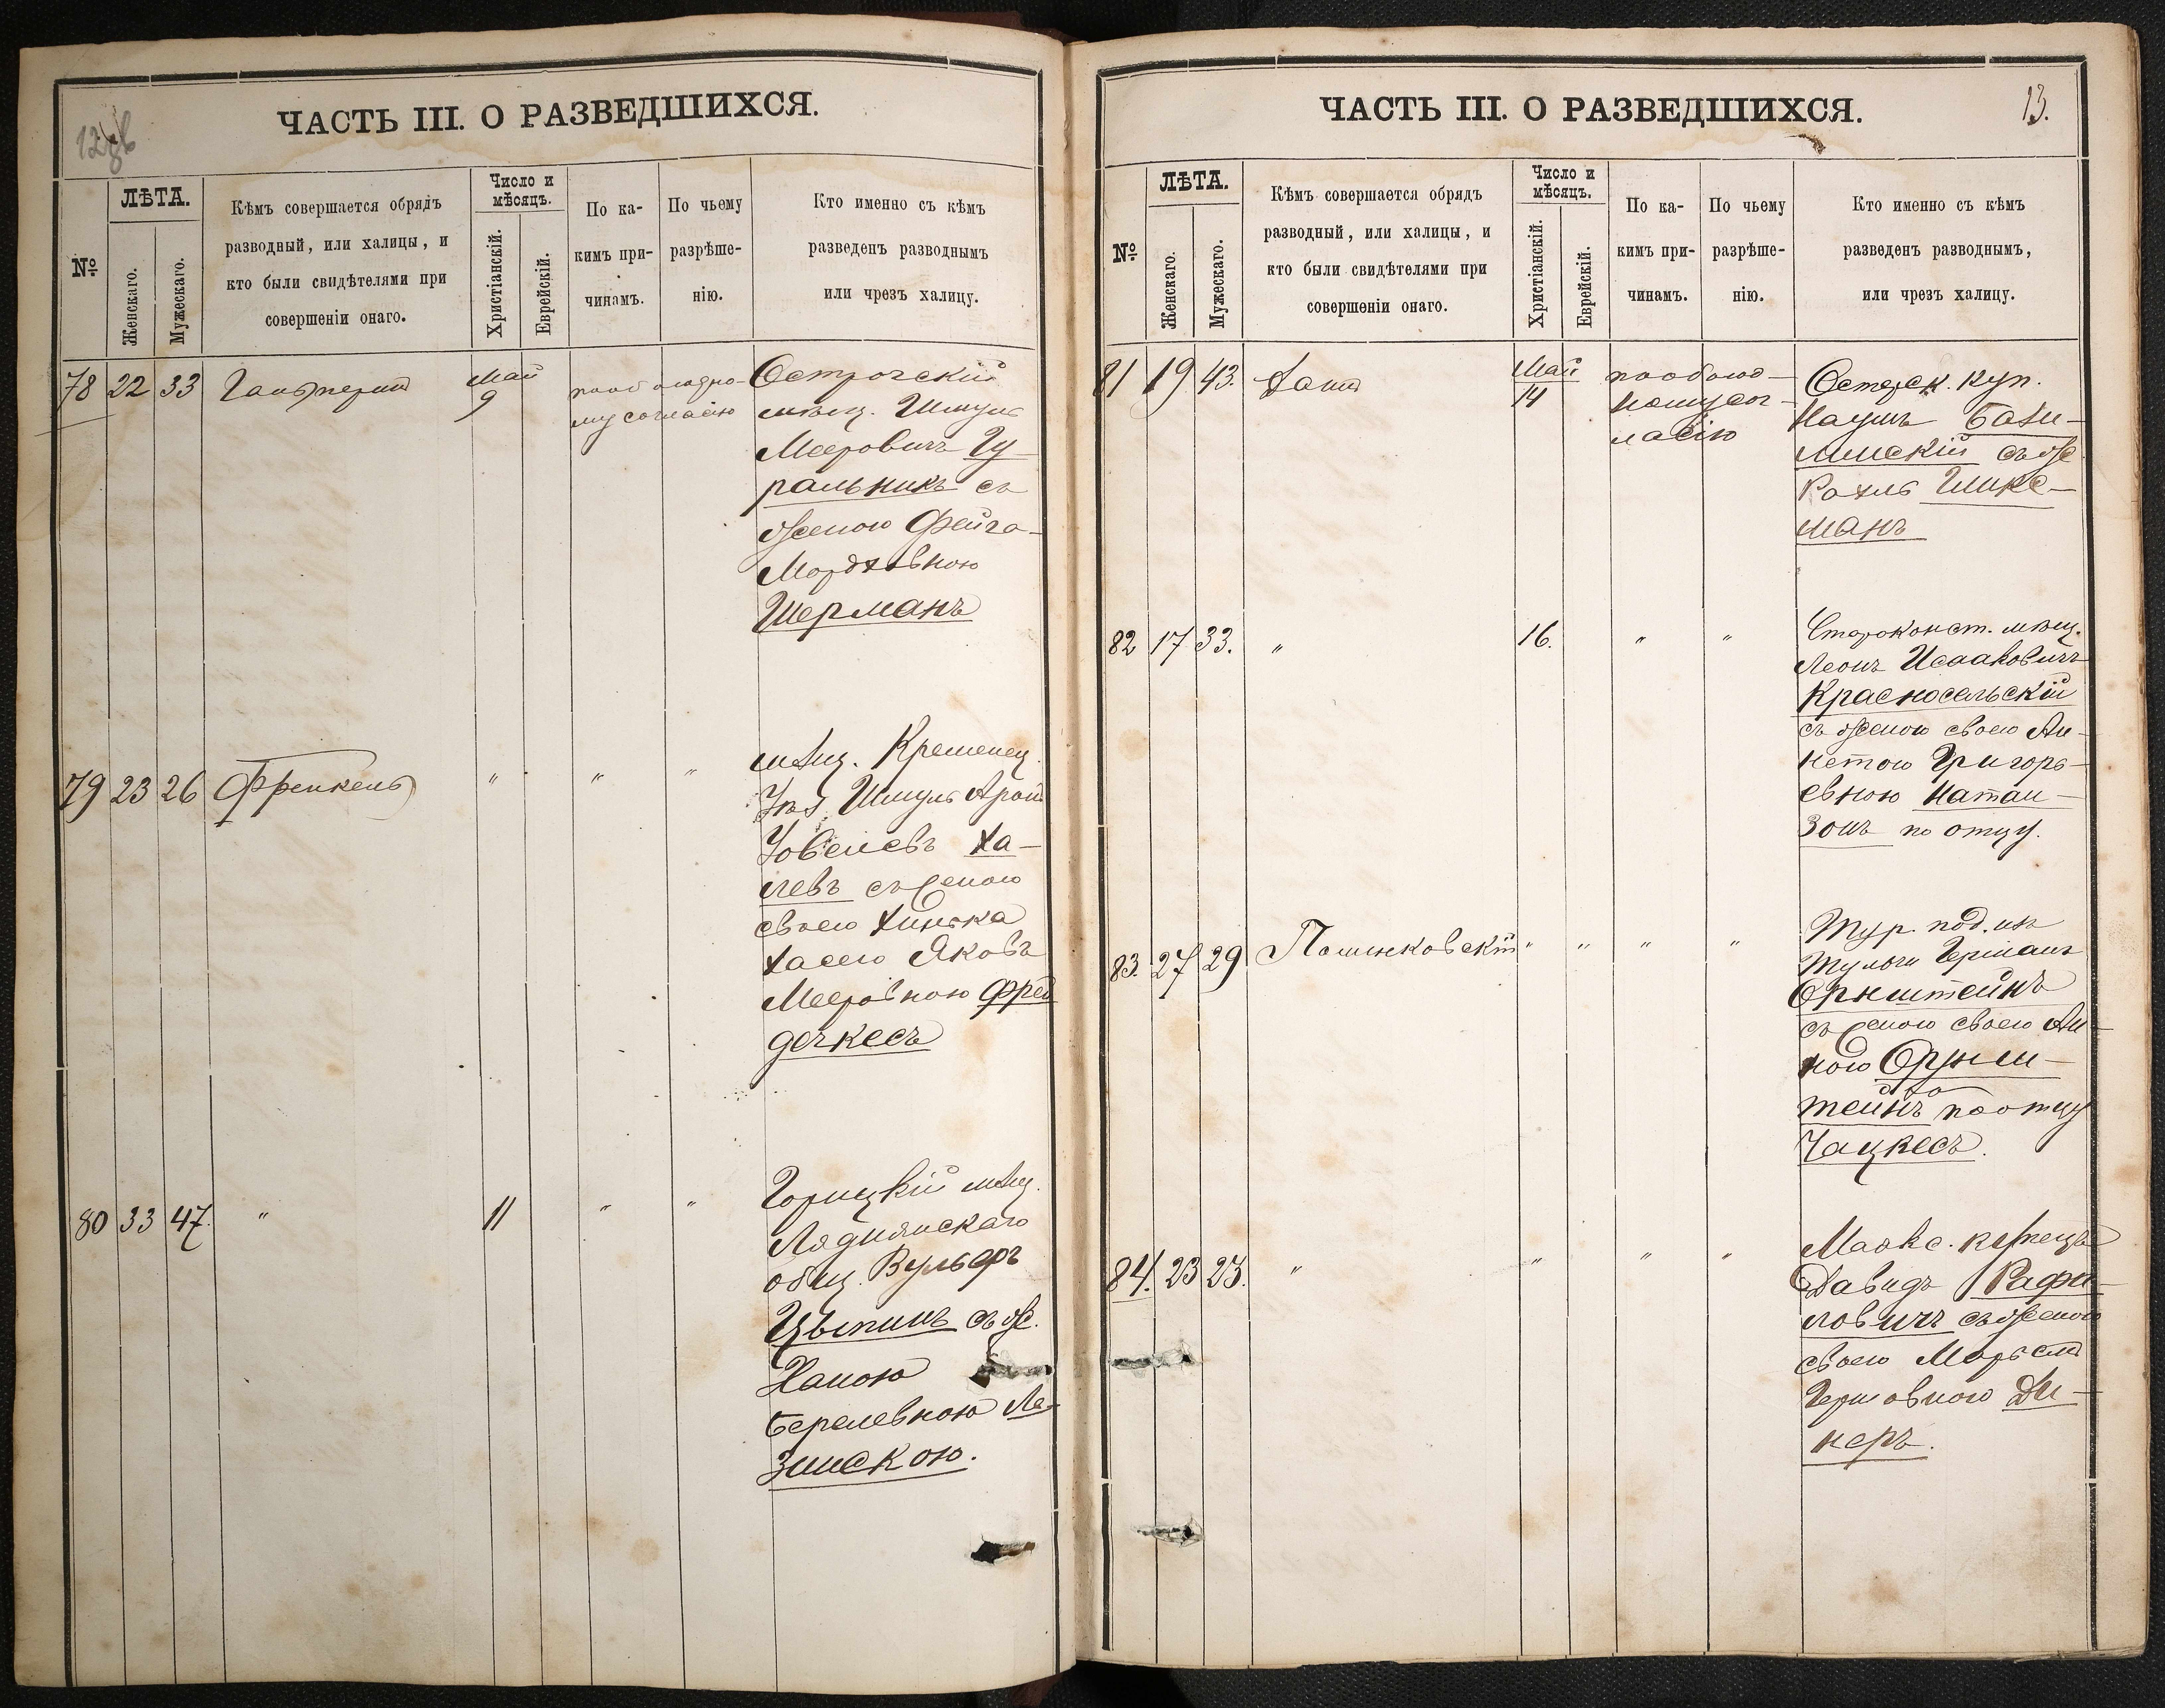 12 об
ЧАСТЬ III. О РАЗВЕДШИХСЯ.
№
ЛѢТА.
Женскаго.
Мужескаго.
Кѣмъ совершается обрядъ
разводный, или халицы, и
кто были свидѣтелями при
совершеніи онаго.
Число и
мѣсяцъ.
Христіанскій.
Еврейскій.
По ка-
кимъ при-
чинамъ.
По чьему
разрѣше-
нію.
Кто именно съ кѣмъ
разведенъ разводнымъ
или чрезъ халицу.
78 22 33 Гальперинъ Май 9
по обоюдно-
му согласію
Острогскій
мѣщ. Шмуль
Мееровичъ Гу-
ральникъ съ
женою Фейга
Мордховною
Шерманъ
79 23 26 Френкель " " "
мѣщ. Кременец.
Шмуль Арон
Іовелевъ Ха-
левъ съ женою
своею
Хасею Яковъ
Мееровною Фрей
дечкесъ
80 33 47. " 11 " "
Горицкій мѣщ.
Ляднянскаго
общ. Вульфъ
Цыпинъ съ ж.
Ханою
Берелевною Ла-
зинскою.
13.
ЧАСТЬ III. О РАЗВЕДШИХСЯ.
№
ЛѢТА.
Женскаго.
Мужескаго.
Кѣмъ совершается обрядъ
разводный, или халицы, и
кто были свидѣтелями при
совершеніи онаго.
Число и
мѣсяцъ.
Христіанскій.
Еврейскій.
По ка-
кимъ при-
чинамъ.
По чьему
разрѣше-
нію.
Кто именно съ кѣмъ
разведенъ разводнымъ,
или чрезъ халицу.
81 19 43. Май 14
по обоюд-
ному сог-
ласію
Остерск. куп.
Наумъ Бахи-
линскій съ ж
Рахль Шикс-
манъ
82 17 33. " 16. " "
Староконст. мѣщ.
Леонъ Исааковичъ
Красносельскій
съ женою своею Ан-
нетою Григорь-
евною Натан-
зонъ по отцу.
83. 27 29 " " " "
Тур. под. изъ
Тульчи Германъ
Орнштейнъ
съ женою своею Ан-
ною Орнш-
тейнъ по отцу
Чацкесъ.
84. 23 23. " " " "
Маякс. купецъ
Давидъ Рафа-
ловичъ съ женою
своею
Гершовною Ди-
неръ.